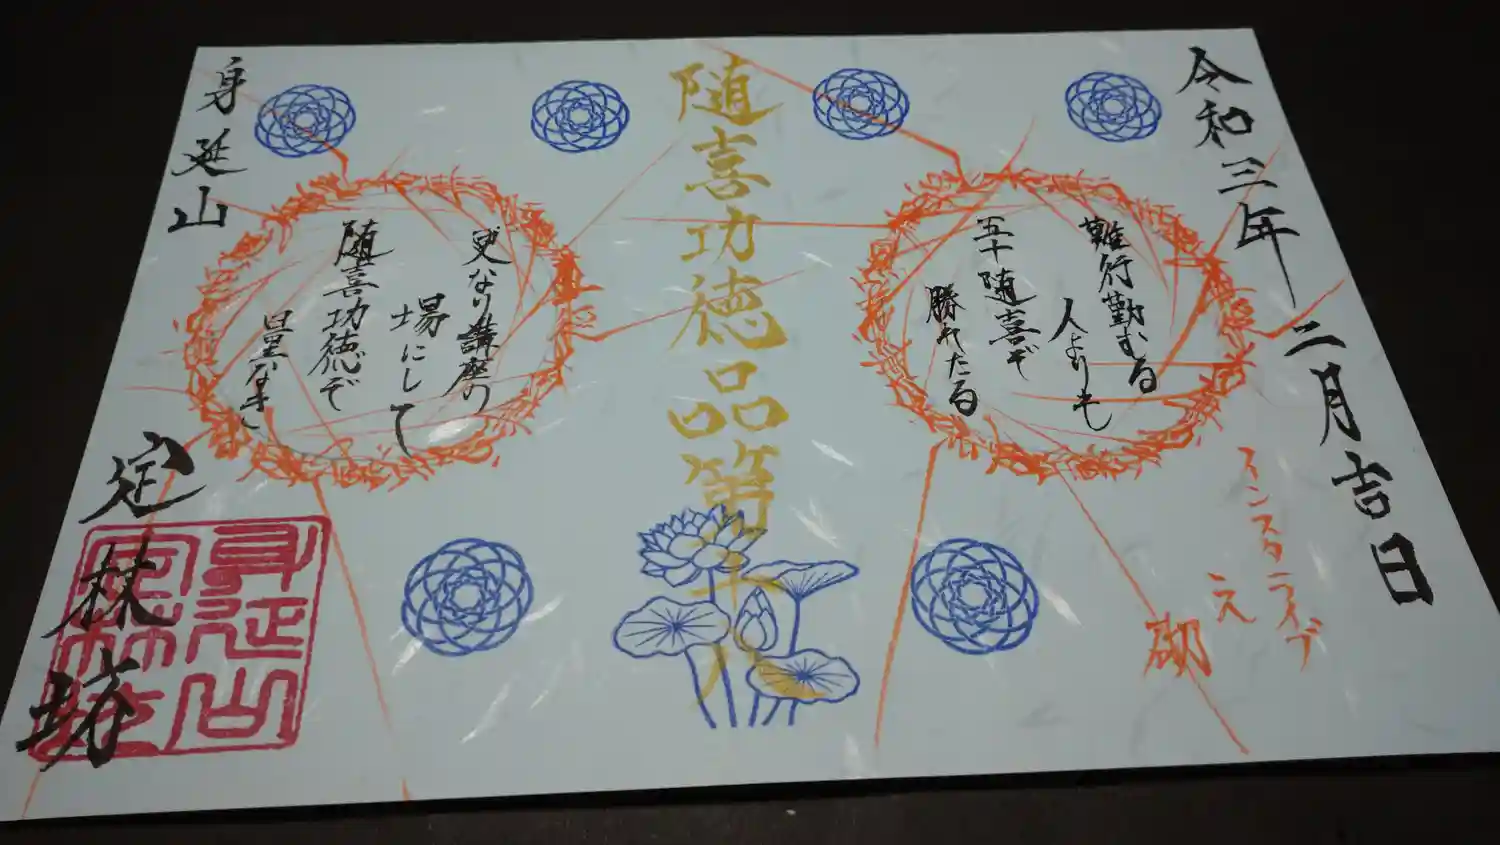 令和三年二月吉日
インスタライブ
え
難行勤むる
人よりも
五十随喜ぞ
勝れたる
随喜功徳品第十八
更なり講座の
場にして
随喜功徳ぞ
量なき
身延山
定林坊
身延山
定林坊